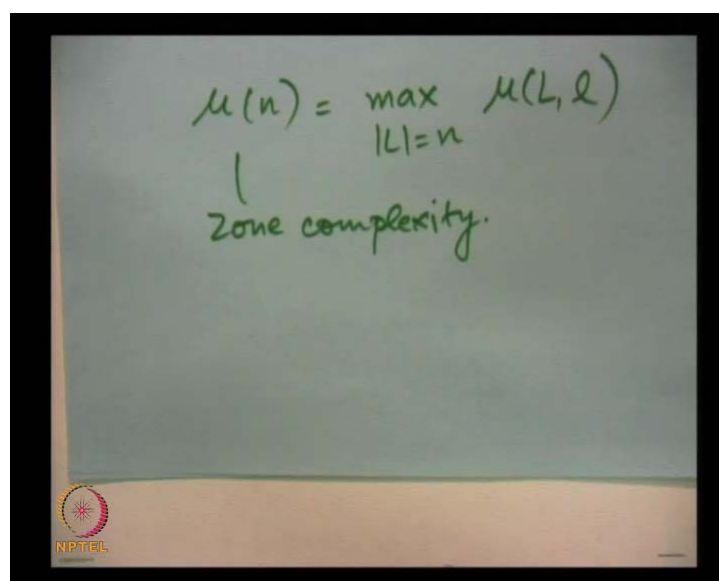 μ(n) = max μ(L, l)
|L|=n
zone complexity.
NPTEL